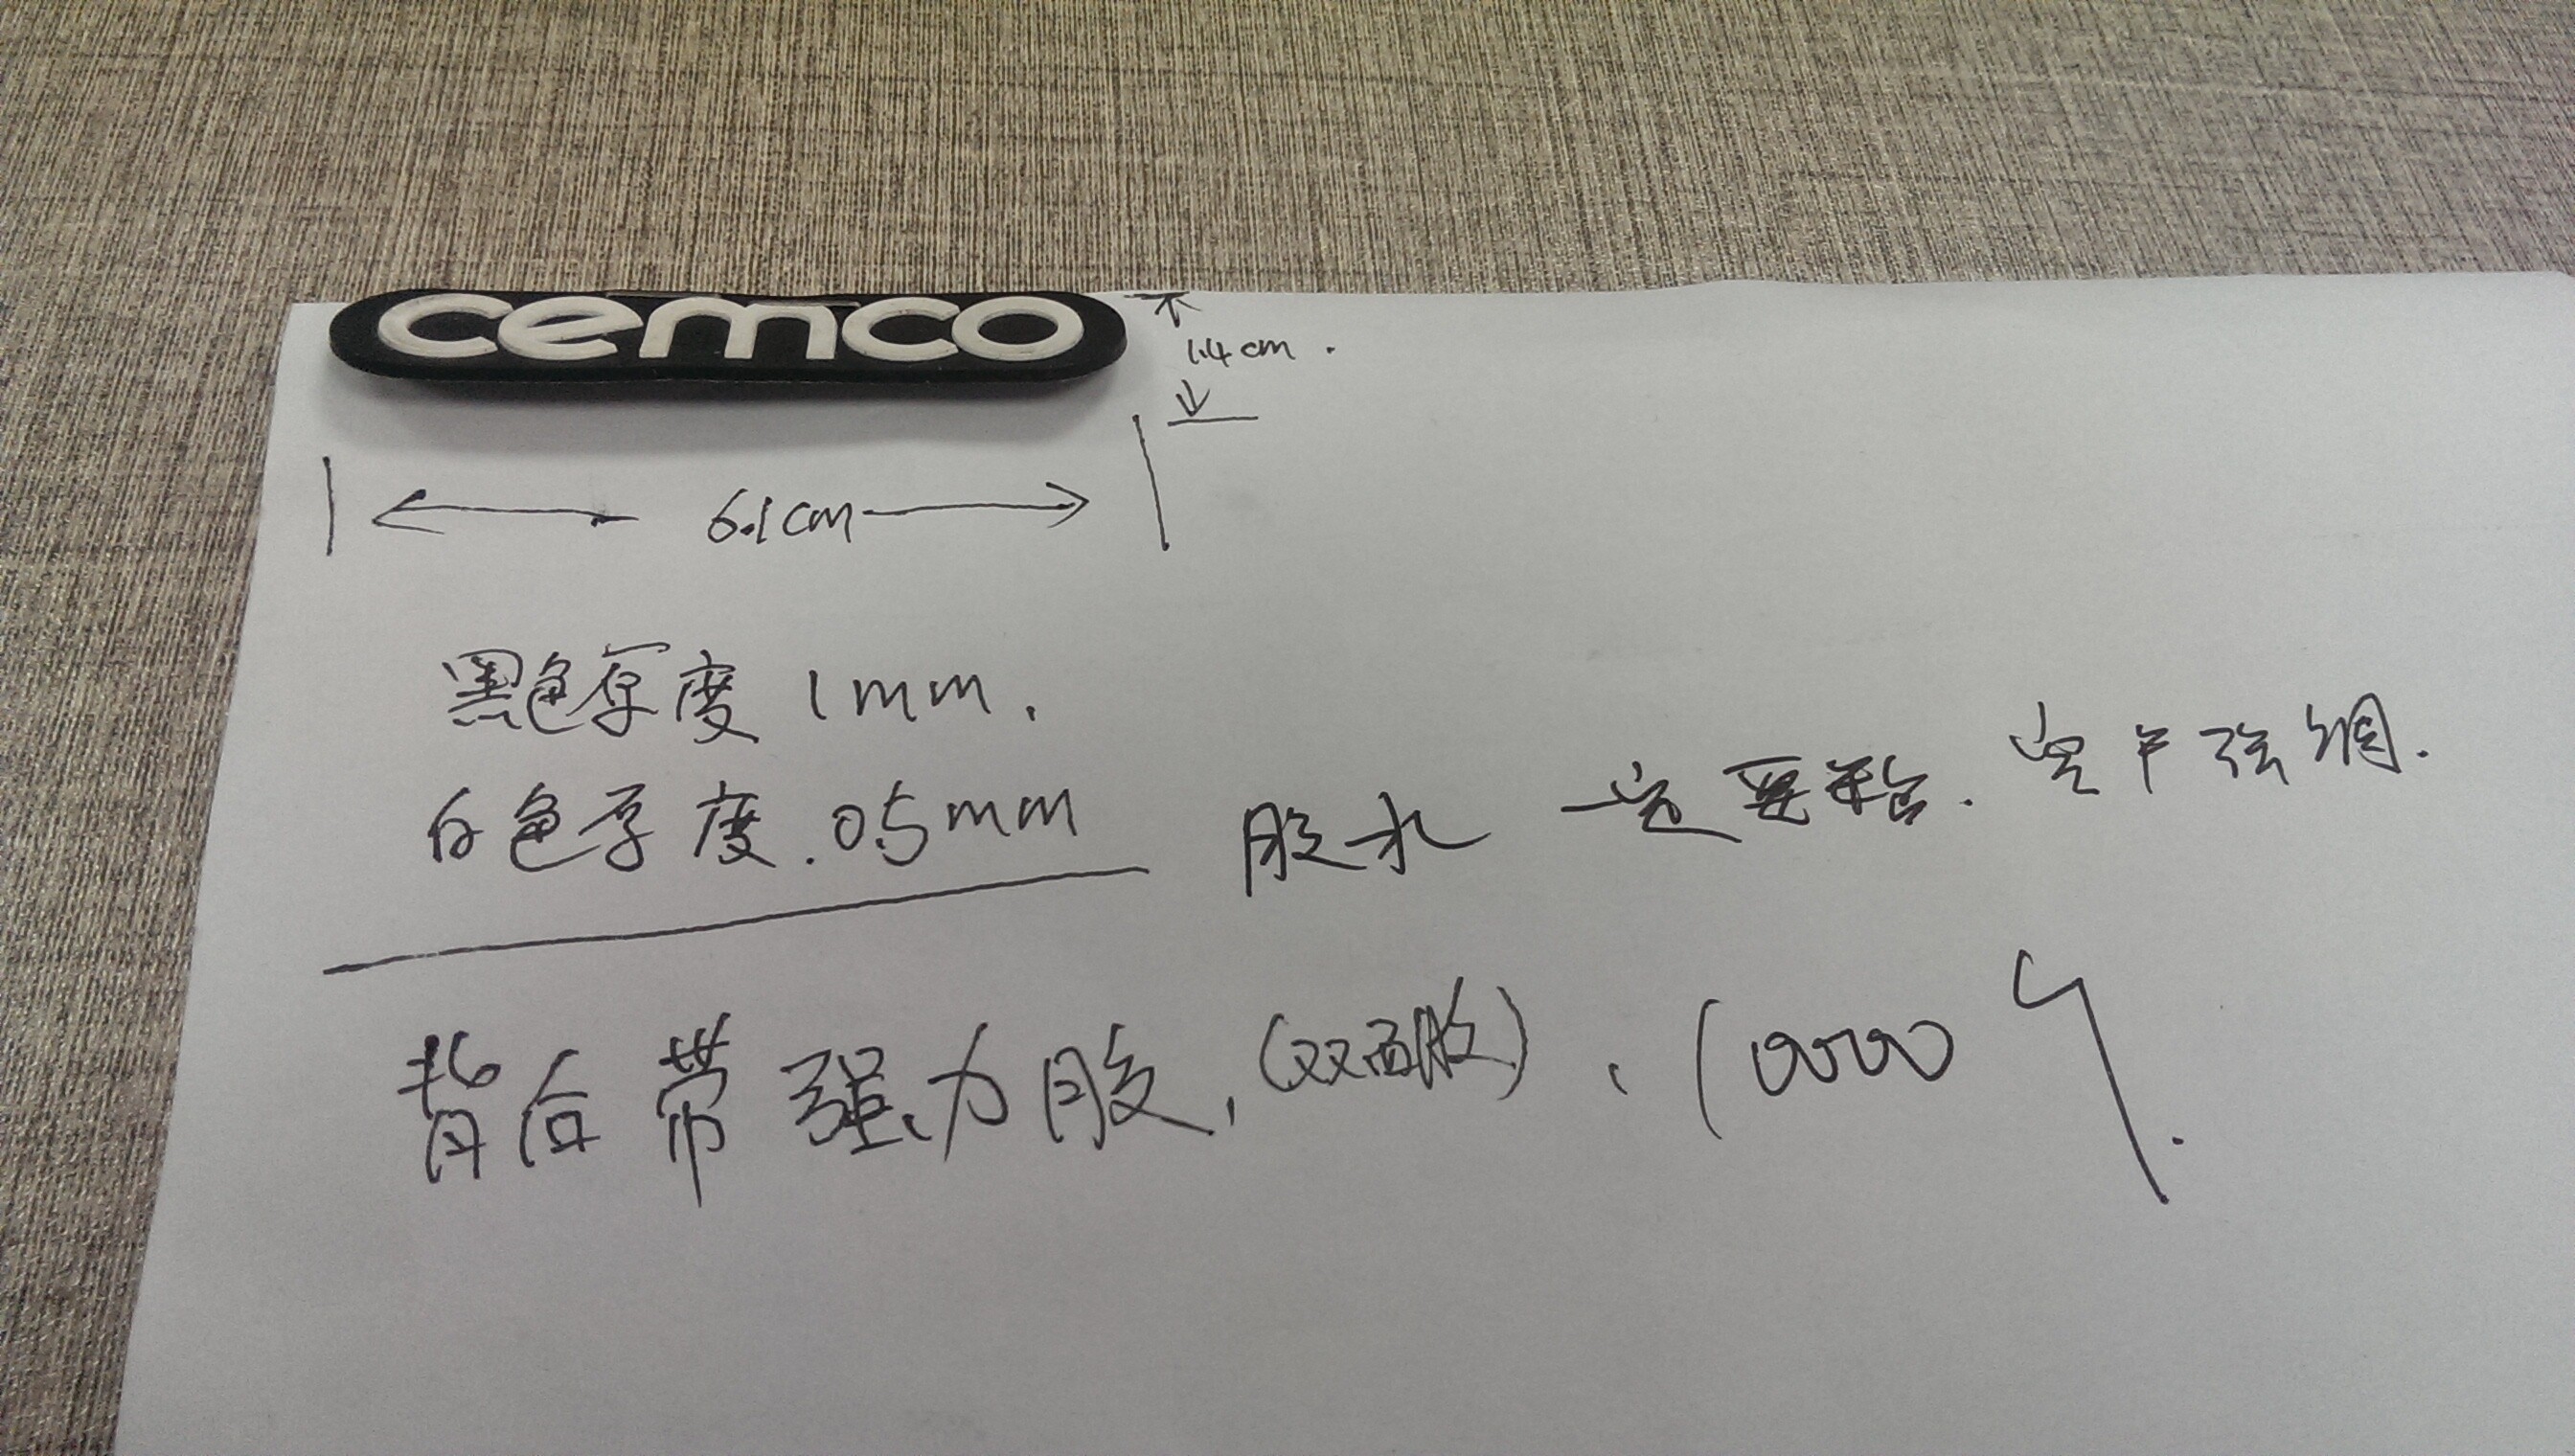 cemco
1.4cm.
6.1cm
黑色厚度 1mm.
白色厚度.0.5mm
胶水 一定要粘.客户强调.
背后带强力胶,(双面胶),10000个.